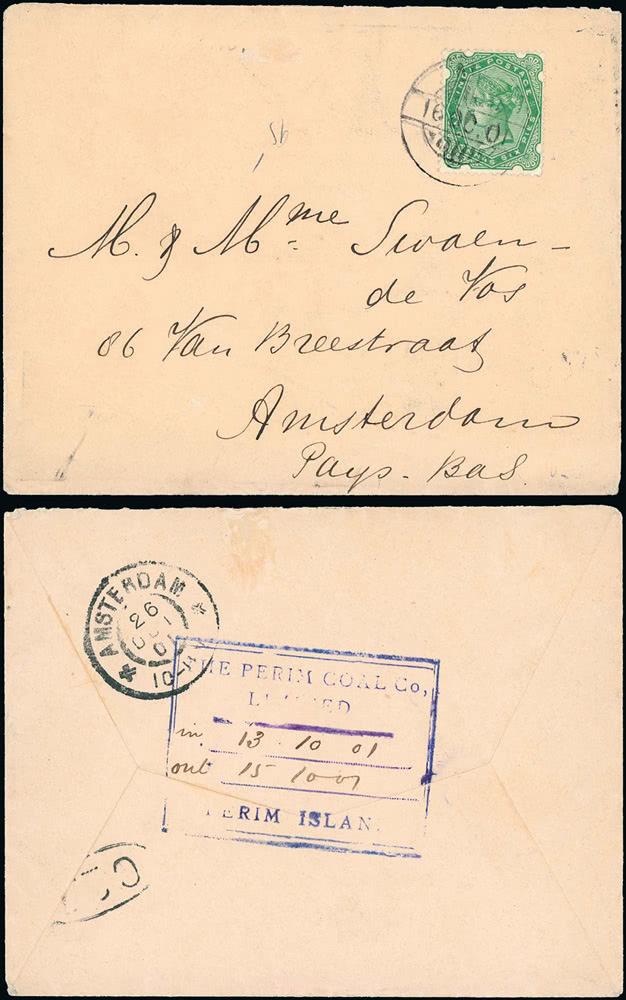 INDIA POSTAGE
SIX PIES
16 OC.01
M. & Mme Swaen-
de Vos
86 Van Breestraat
Amsterdam
Pays-Bas.
AMSTERDAM
26
10-11
THE PERIM COAL Co,
LIMITED
in 13 10 01
out 15 10 01
PERIM ISLAN